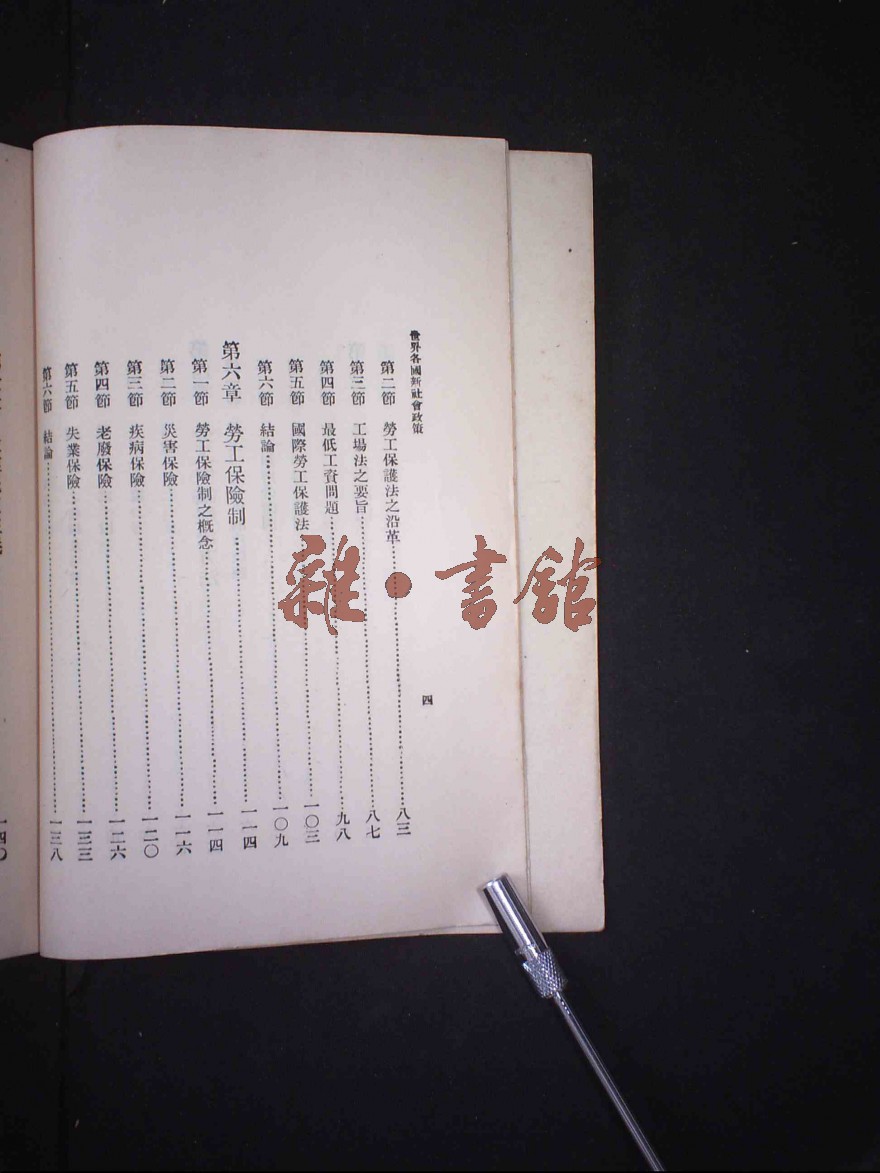 世界各國新社會政策
四
第二節 勞工保護法之沿革 八三
第三節 工場法之要旨 八七
第四節 最低工資問題 九八
第五節 國際勞工保護法 一〇三
第六節 結論 一〇九
第六章 勞工保險制 一一四
第一節 勞工保險制之概念 一一四
第二節 災害保險 一一六
第三節 疾病保險 一二〇
第四節 老廢保險 一二六
第五節 失業保險 一三三
第六節 結論 一三八
一四〇
雜·書館